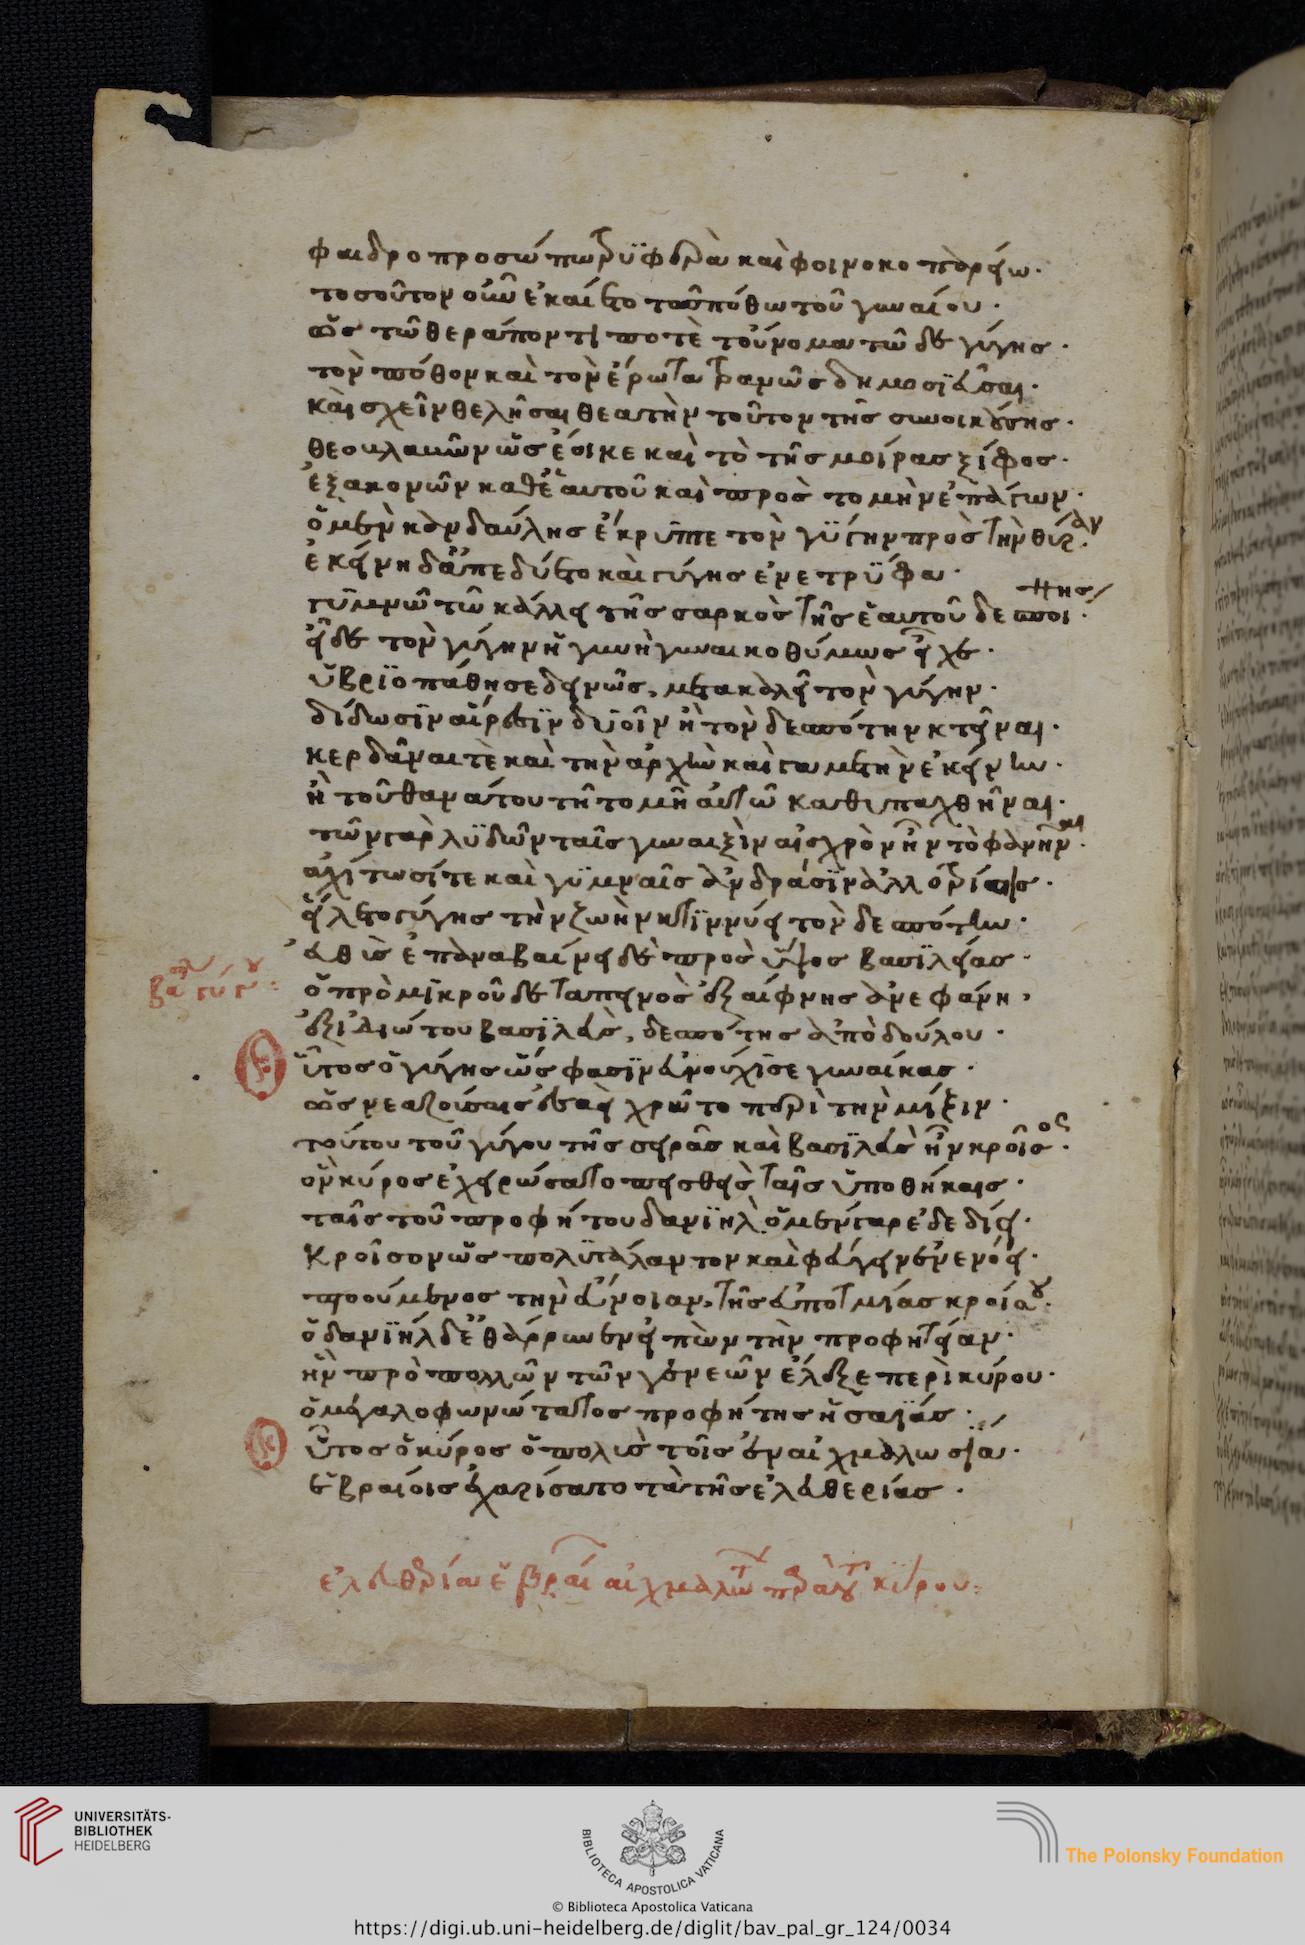 φαιδροπροσώπω τρυφερὰ καὶ φοινοκοπαρείω·
τοσοῦτον οὖν ἐκαίετο τῶ πόθω τοῦ γυναίου·
ὡς τῶ θεράποντί ποτε τοὔνομα τῶδε γύγης·
τὸν πόθον καὶ τὸν ἔρωτα τρανῶς δημοσιεῦσαι·
καὶ σχεῖν θελῆσαι θεατὴν τοῦτον τῆς συνοικούσης·
θεουλαμῶν ὡς ἔοικε καὶ τὸ τῆς μοίρας ξίφος·
ἐξακονῶν καθ' ἑαυτοῦ καὶ πρὸς τομὴν ἐπάγων·
ὁ μὲν κανδαύλης ἔκρυπτε τὸν γύγην πρὸς τὴν θύραν·
ἐκείνη δ' ἀπεδύετο καὶ γύγης ἐνετρύφα·
γυμνῶ τῶ κάλλει τῆς σαρκὸς τῆς ἑαυτοῦ δεσπότιδος
ἡ δὲ τὸν γύγην ἡ γυνὴ γυναικοθύμως εἶχε·
ὑβριοπάθησε δεινῶς, μετακαλεῖ τὸν γύγην·
δίδωσιν αἵρεσιν δυοῖν ἢ τὸν δεσπότην κτεῖναι·
κερδᾶναί τε καὶ τὴν ἀρχὴν καὶ γαμετὴν ἐκείνην·
ἢ τοῦ θανάτου τῆ τομῆ αὐτῶ καθυπαχθῆναι·
τῶν γὰρ λυδῶν ταῖς γυναιξὶν αἰσχρὸν ἦν τὸ φανῆναι
ἀχίτωσί τε καὶ γυμναῖς ἀνδράσιν ἀλλοτρίοις·
εἵλετο γύγης τὴν ζωὴν κτιννύει τὸν δεσπότην·
εὐθὺς ἐπαναβαίνει δὲ πρὸς ὕψος βασιλείας·
ὁ πρὸ μικροῦ δὲ ταπεινὸς ἐξαίφνης ἀνεφάνη,
ἐξ ἰδιώτου βασιλεὺς, δεσπότης ἀπὸ δούλου·
οὗτος ὁ γύγης ὥς φασιν εὐνούχισε γυναῖκας·
ὡς νεαζούσαις ἐσαεὶ χρῶτο περὶ τὴν μίξιν·
τούτου τοῦ γύγου τῆς σειρᾶς καὶ βασιλεὺς ἦν κροῖσος·
ὃν κύρος ἐχειρώσατο πεισθεὶς ταῖς ὑποθήκαις·
ταῖς τοῦ προφήτου δανιὴλ ὁ μὲν γὰρ ἐδεδίει·
κροῖσον ὡς πολυτάλαντον καὶ φεύγειν ἐνενόει·
πτοούμενος τὴν εὔνοιαν, τῆς εὐποτμίας κροίσου·
ὁ δανιὴλ δὲ θάρρων ἐνειπὼν τὴν προφητείαν·
ἣν πρὸ πολλῶν τῶν γενεῶν ἔλεξε περὶ κύρου·
ὁ μεγαλοφωνώτατος προφήτης ἡσαΐας·
οὗτος ὁ κύρος ὁ πολὺς τοῖς ἐν αἰχμαλωσία·
ἑβραίοις ἐχαρίσατο τὰ τῆς ἐλευθερίας·
ἐλευθερία ἑβραί αἰχμαλώτ παρὰ τοῦ κύρου:
UNIVERSITÄTS-
BIBLIOTHEK
HEIDELBERG
BIBLIOTECA APOSTOLICA VATICANA
The Polonsky Foundation
© Biblioteca Apostolica Vaticana
https://digi.ub.uni-heidelberg.de/diglit/bav_pal_gr_124/0034